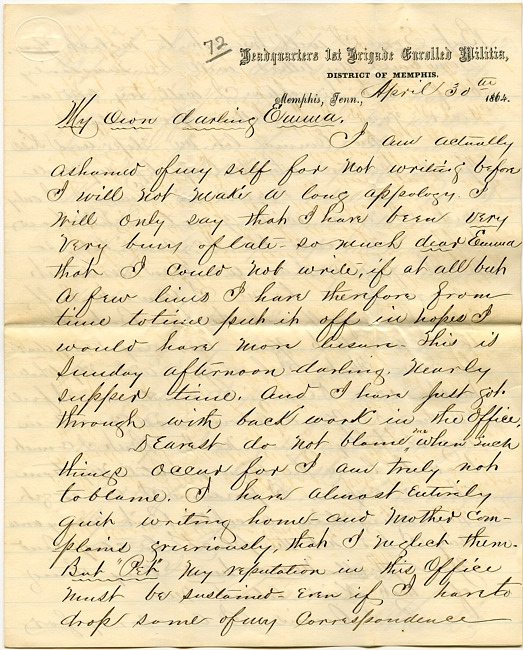 72
Headquarters 1st Brigade Enrolled Militia,
DISTRICT OF MEMPHIS.
Memphis, Tenn., April 30th 1864.
My Own darling Emma.
I am actually
ashamed of my self for not writing before
I will not make a long appology. I
will only say that I have been very
very busy of late - so much dear Emma
that I could not write, if at all but
a few lines I have therefore from
time to time put it off in hopes I
would have more leisure - This is
Sunday afternoon darling. Nearly
supper time. And I have just got
through with back work in the Office,
Dearest do not blame me when such
things occur for I am truly not
to blame. I have almost entirely
quit writing home - and Mother com-
plains grieviously, that I neglect them.
But "Pet" My reputation in this Office
must be sustained - Even if I have to
drop some of my Correspondence